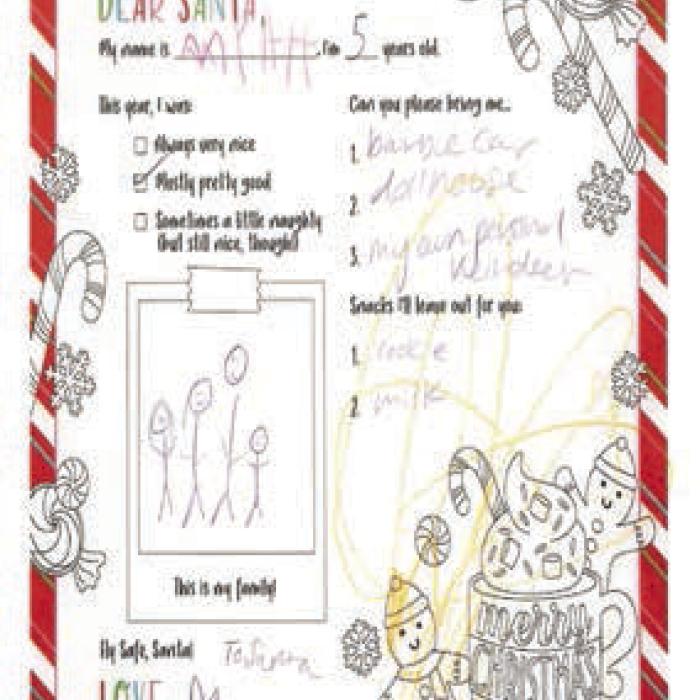 DEAR SANTA,
My name is I'm 5 years old.
This year, I was:
Always very nice
Mostly pretty good
Sometimes a little naughty
(but still nice, though!)
Can you please bring me...
1. barbie car
2. dollhouse
3. my own personal
reindeer
Snacks I'll leave out for you:
1. cookie
2. milk
This is my family!
Fly Safe, Santa!
To Santa
LOVE,
merry
CHRISTMAS